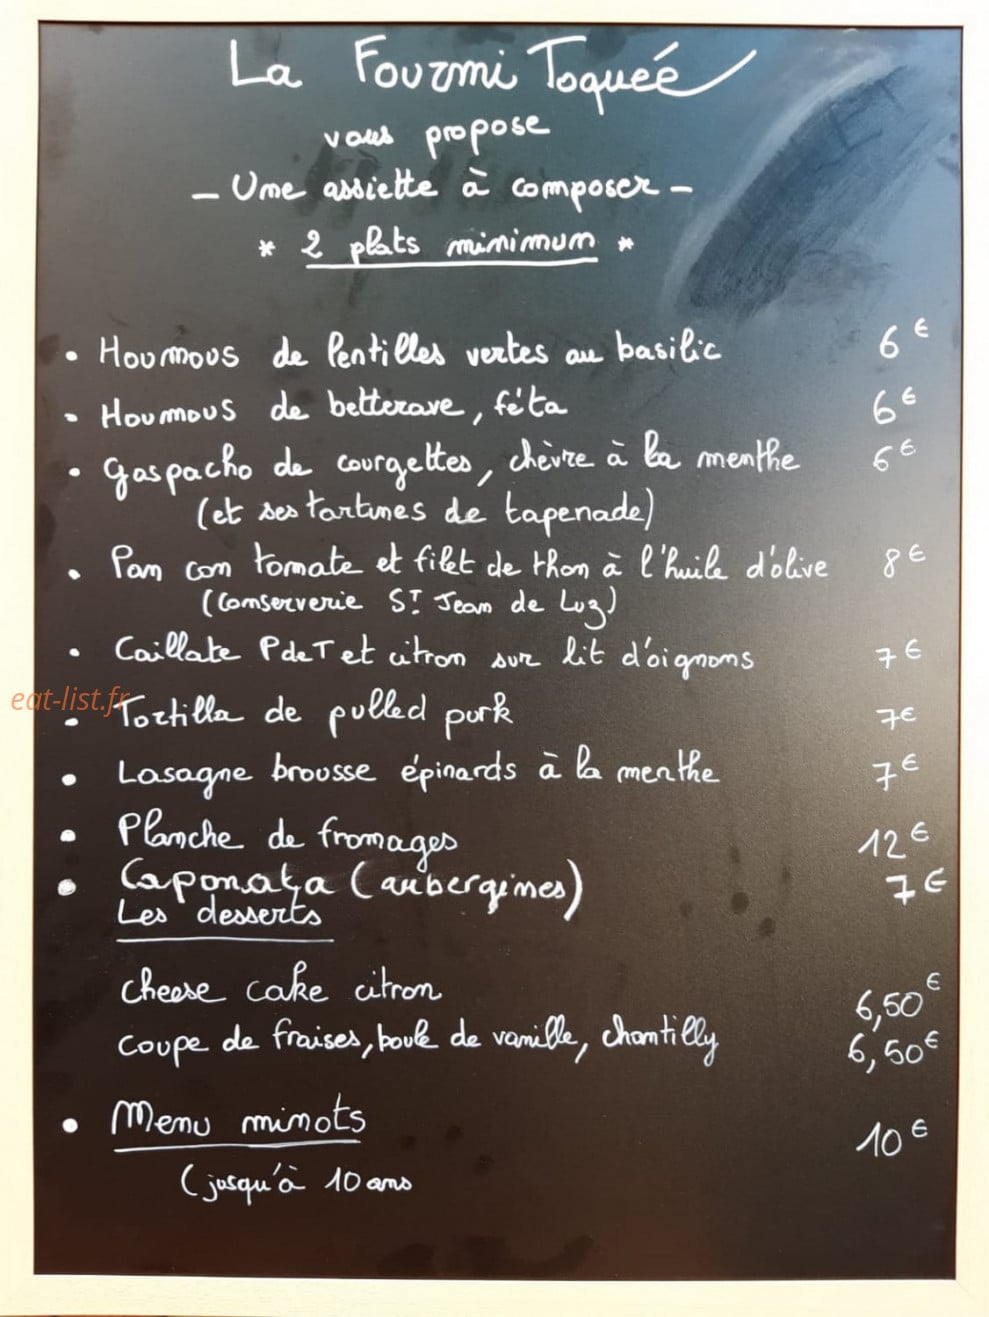 La Fourmi Toquéé
vous propose
- Une assiette à composer -
* 2 plats minimum *
• Houmous de lentilles vertes au basilic 6€
• Houmous de betterave, féta 6€
• Gaspacho de courgettes, chèvre à la menthe 6€
(et ses tartines de tapenade)
• Pan con tomate et filet de thon à l'huile d'olive 8€
(Conserverie St Jean de Luz)
• Caillate PdeT et citron sur lit d'oignons 7€
eat-list.fr
• Tortilla de pulled pork 7€
• Lasagne brousse épinards à la menthe 7€
• Planche de fromages 12€
• Caponata (aubergines) 7€
Les desserts
cheese cake citron 6,50€
coupe de fraises, boule de vanille, chantilly 6,50€
• Menu minots 10€
(jusqu'à 10 ans